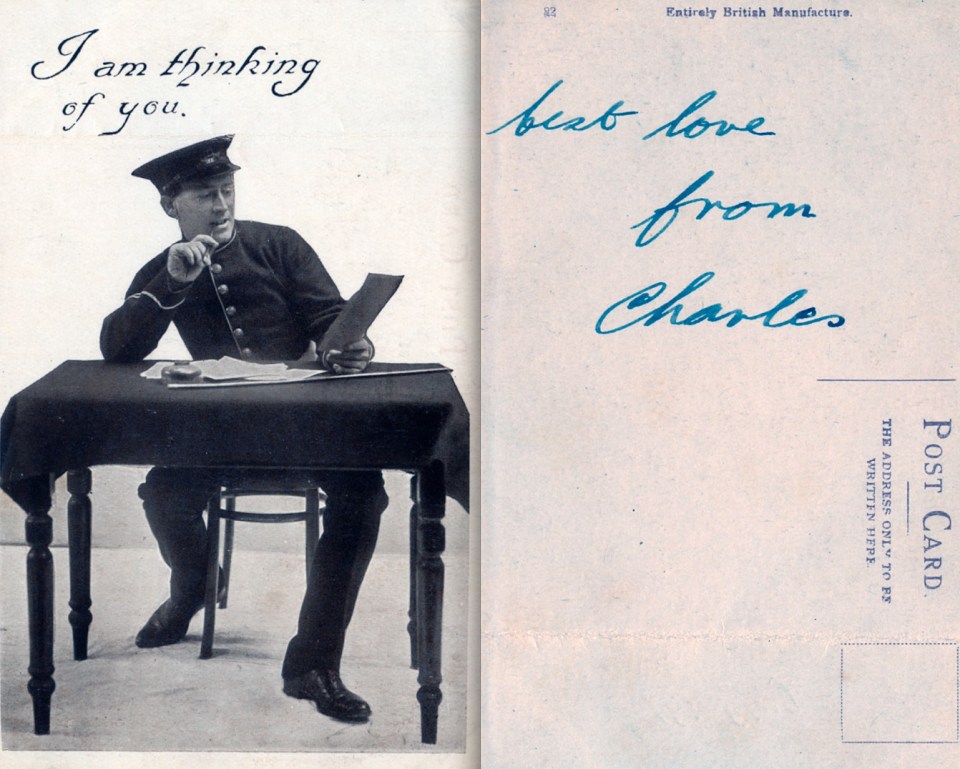 I am thinking
of you.
22 Entirely British Manufacture.
best love
from
Charles
POST CARD.
THE ADDRESS ONLY TO BE
WRITTEN HERE.